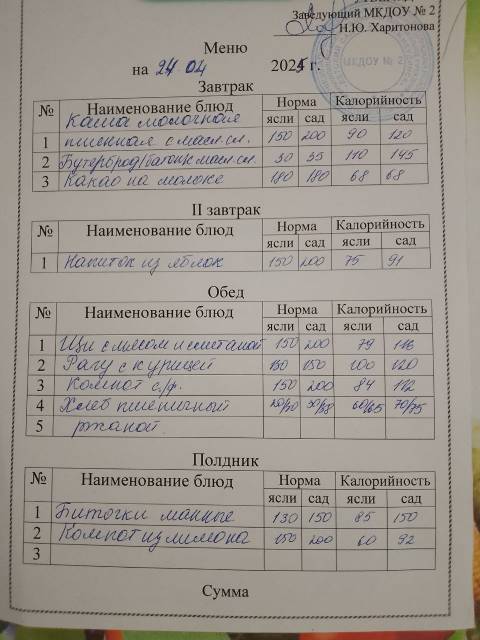 Заведующий МКДОУ № 2
Н.Ю. Харитонова
МКДОУ № 2
Меню
на 24 04 2025 г.
Завтрак
№ Наименование блюд Норма Калорийность
ясли сад ясли сад
Каша молочная
1 пшенная с масл.сл. 150 200 90 120
2 Бутерброд/батон/с масл.сл. 30 55 110 145
3 Какао на молоке 180 180 68 68
II завтрак
№ Наименование блюд Норма Калорийность
ясли сад ясли сад
1 Напиток из яблок 150 200 75 91
Обед
№ Наименование блюд Норма Калорийность
ясли сад ясли сад
1 Щи с мясом и сметаной 150 200 79 116
2 Рагу с курицей 130 150 100 120
3 Компот с/ф. 150 200 84 112
4 Хлеб пшеничный 60/65 70/75
5 ржаной.
Полдник
№ Наименование блюд Норма Калорийность
ясли сад ясли сад
1 Биточки манные 130 150 85 150
2 Компот из лимона 150 200 60 92
3
Сумма